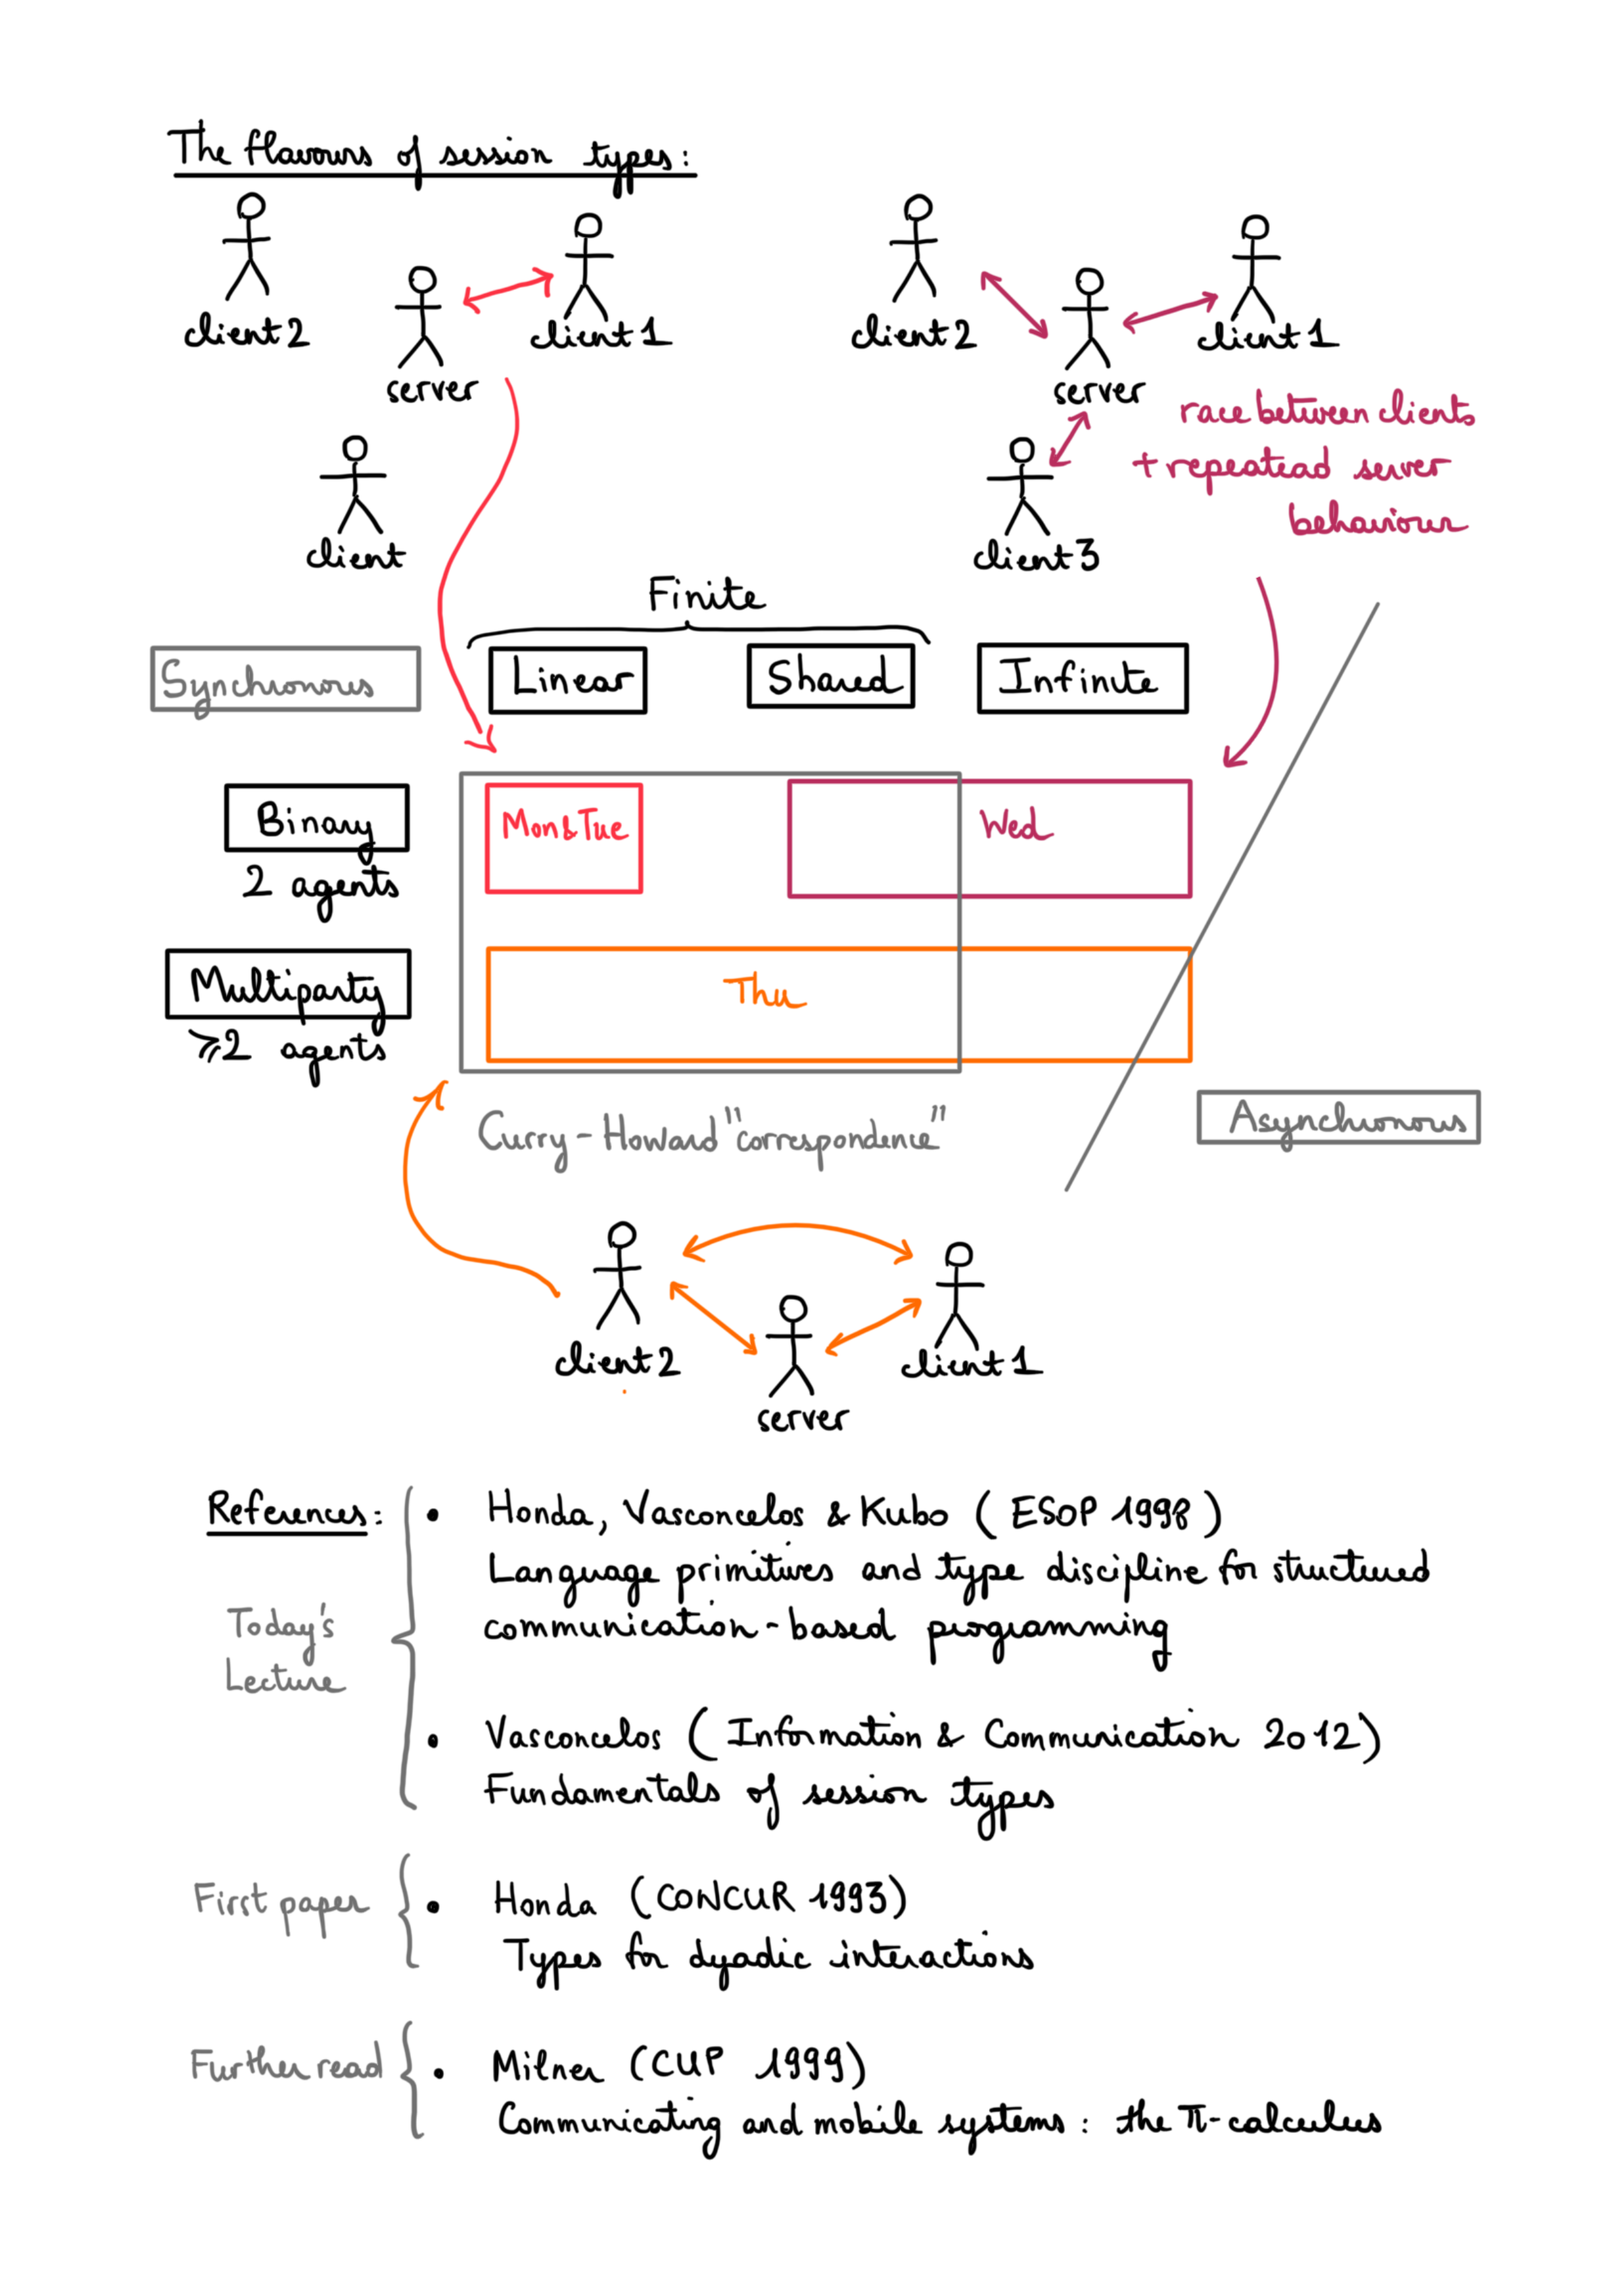 The flavours of session types:
client2
server
client1
client
client2
server
client1
client3
race between clients
+ repeatead server
behaviour
Finite
Synchronous
Linear
Shared
Infinite
Binary
2 agents
Mon&Tue
Wed
Multiparty
⩾2 agents
Thu
Curry-Howard "correspondence"
Asynchronous
client2
server
client1
References:
Today's
Lecture
• Honda, Vasconcelos & Kubo (ESOP 1998)
Language primitives and type discipline for structured
communication-based programming
• Vasconcelos (Information & Communication 2012)
Fundamentals of session types
First paper
• Honda (CONCUR 1993)
Types for dyadic interactions
Further read
• Milner (CUP 1999)
Communicating and mobile systems: the π-calculus